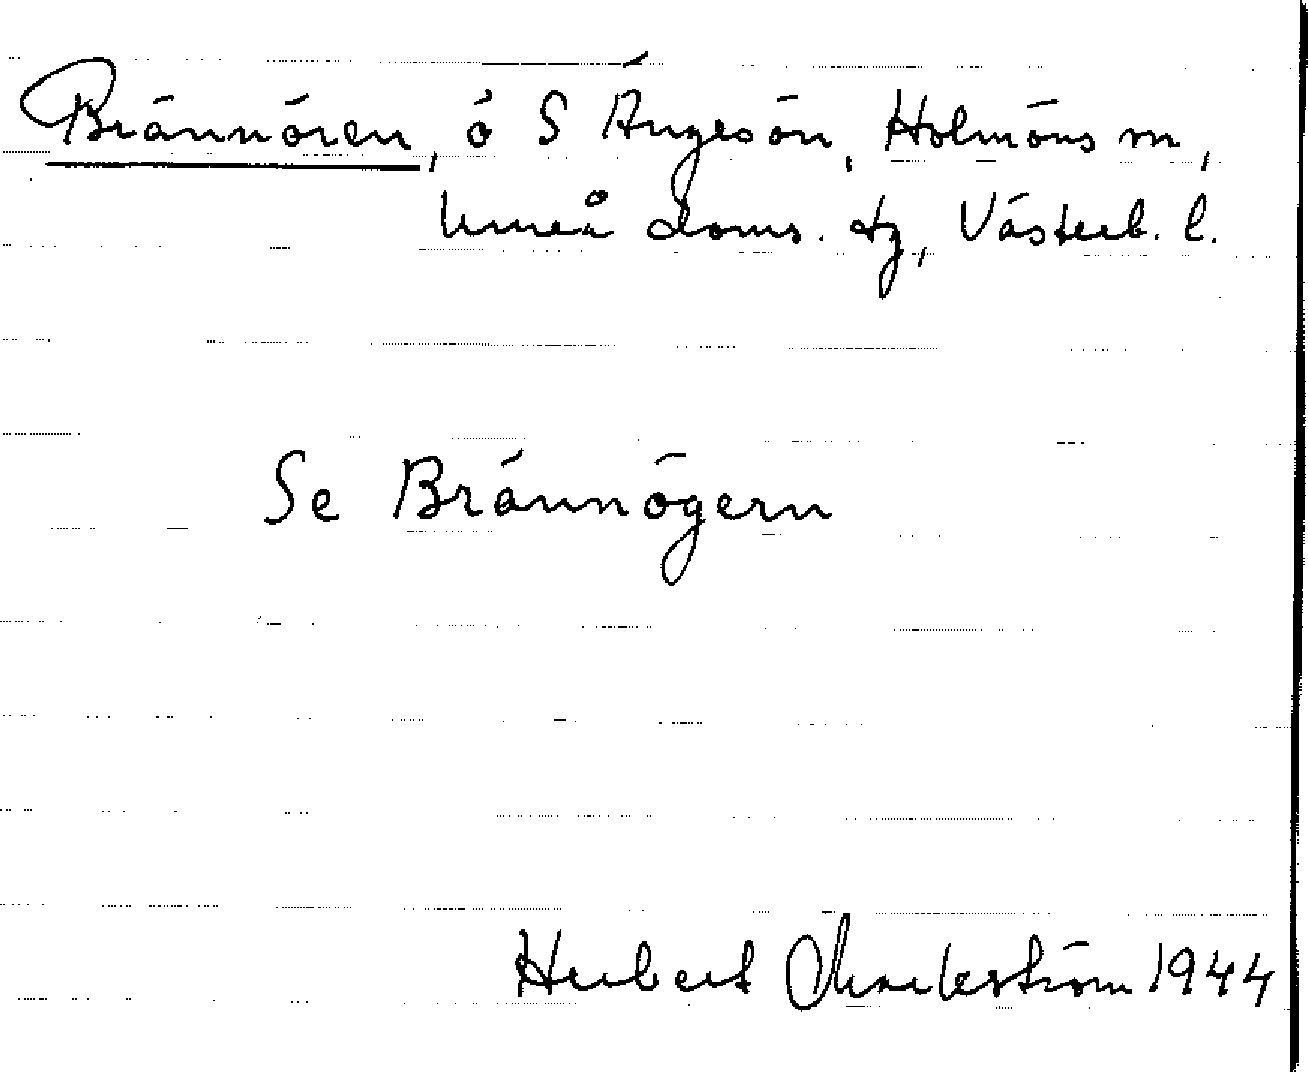 Brännören, ö S Ängesön, Holmöns sn,
Umeå doms. tg, Västerb. l.
Se Brännögern
Herbert Markström 1944